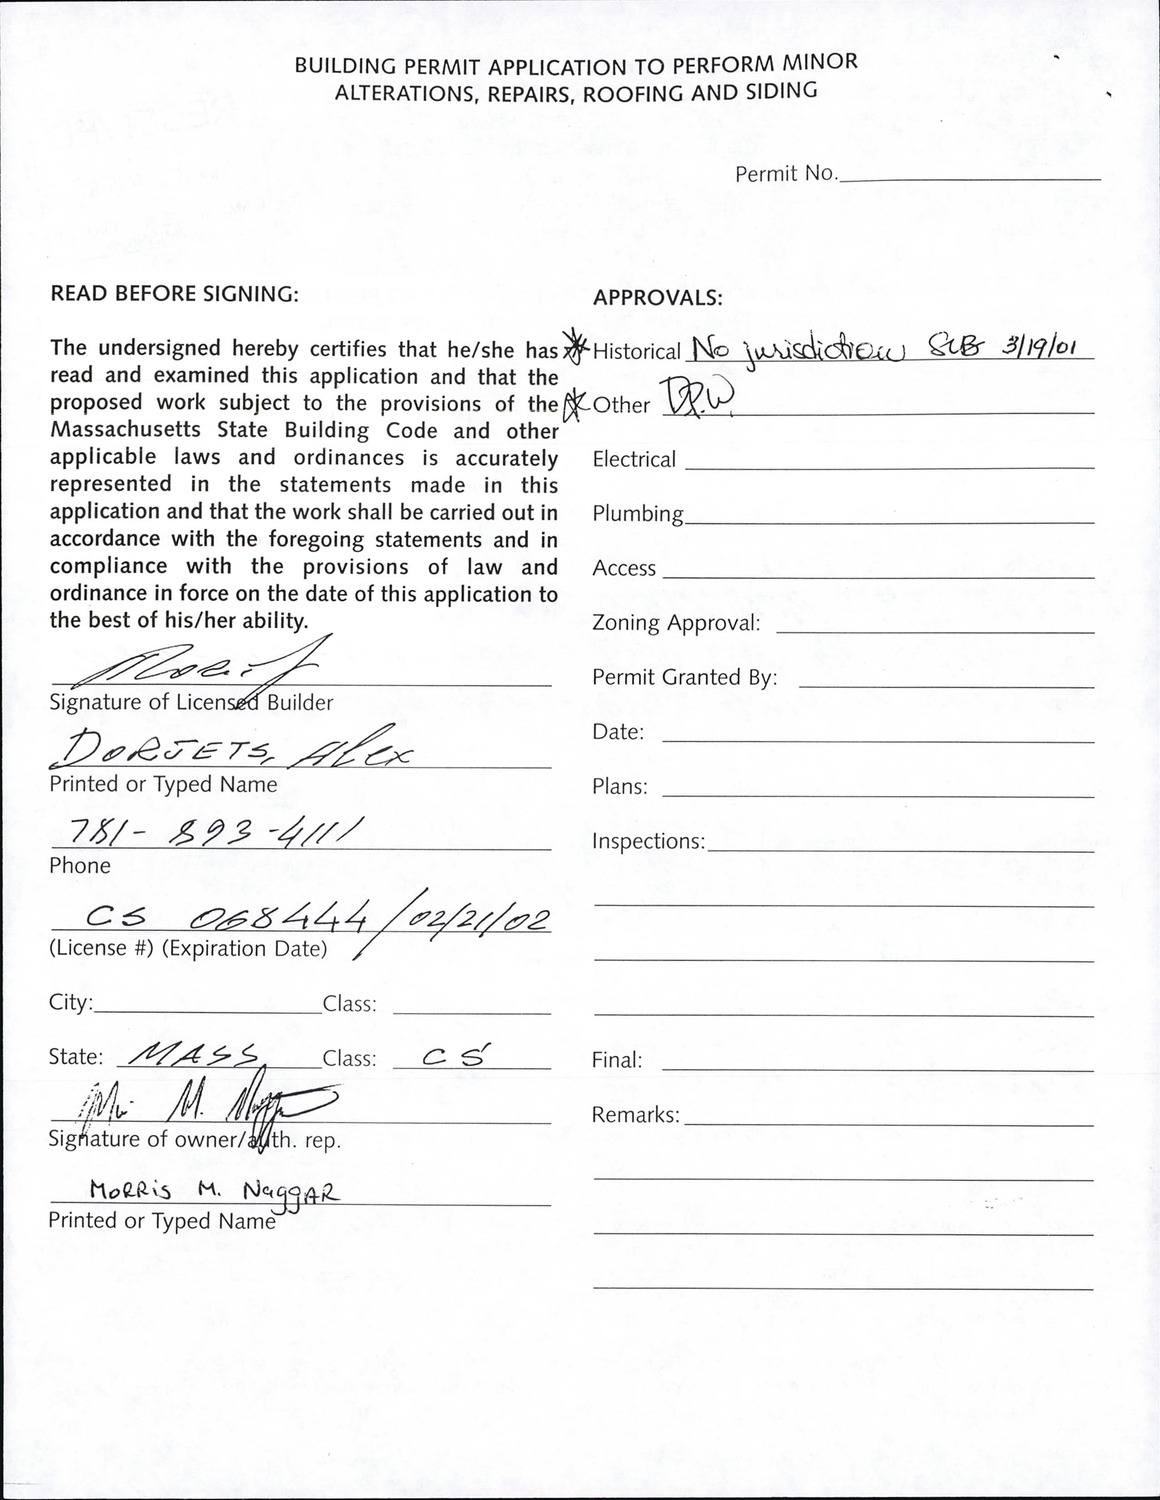 BUILDING PERMIT APPLICATION TO PERFORM MINOR
ALTERATIONS, REPAIRS, ROOFING AND SIDING
Permit No.
READ BEFORE SIGNING:
The undersigned hereby certifies that he/she has
read and examined this application and that the
proposed work subject to the provisions of the
Massachusetts State Building Code and other
applicable laws and ordinances is accurately
represented in the statements made in this
application and that the work shall be carried out in
accordance with the foregoing statements and in
compliance with the provisions of law and
ordinance in force on the date of this application to
the best of his/her ability.
Signature of Licensed Builder
DORJETS, Alex
Printed or Typed Name
781-893-4111
Phone
CS 068444/02/21/02
(License #) (Expiration Date)
City: Class:
State: MASS Class: CS
Signature of owner/auth. rep.
MORRIS M. NaggAR
Printed or Typed Name
APPROVALS:
Historical No jurisdiction 3/19/01
Other D.P.W.
Electrical
Plumbing
Access
Zoning Approval:
Permit Granted By:
Date:
Plans:
Inspections:
Final:
Remarks: